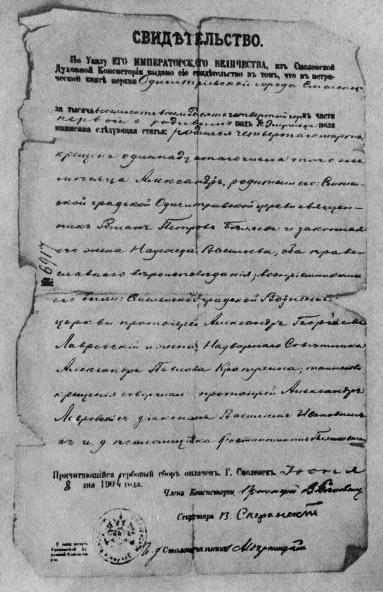 СВИДѢТЕЛЬСТВО.
По Указу ЕГО ИМПЕРАТОРСКАГО ВЕЛИЧЕСТВА, изъ Смоленской
Духовной Консисторіи выдано сіе свидѣтельство въ томъ, что въ метри-
ческой книгѣ церкви Одигитріевской города Смоленска
за тысяча восемьсотъ восемьдесятъ четвертый годъ въ части
первой о родившихся подъ № мужскаго пола
написана слѣдующая статья: родился четвертаго марта,
крещенъ одиннадцатаго числа того же
мѣсяца Александръ, родители его: Смолен-
ской градской Одигитріевской церкви священ-
никъ Романъ Петровъ Бѣляевъ и законная
его жена Надежда Васильева, оба право-
славнаго вѣроисповѣданія; воспріемниками
его были: Смоленской градской Вознесен.
церкви протоіерей Александръ Георгіевъ
Лавровскій и жена Надворнаго Совѣтника
Александра Павлова Крапухина; таинство
крещенія совершалъ протоіерей Александръ
Лавровскій съ діакономъ Василіемъ Ивановымъ
и и. д. псаломщика Константиномъ
№ 6917
Причитающійся гербовый сборъ оплаченъ. Г. Смоленскъ. Іюня
8 дня 1904 года.
Членъ Консисторіи Протоіерей
Секретарь В. Сперанскій
И. д. Столоначальника